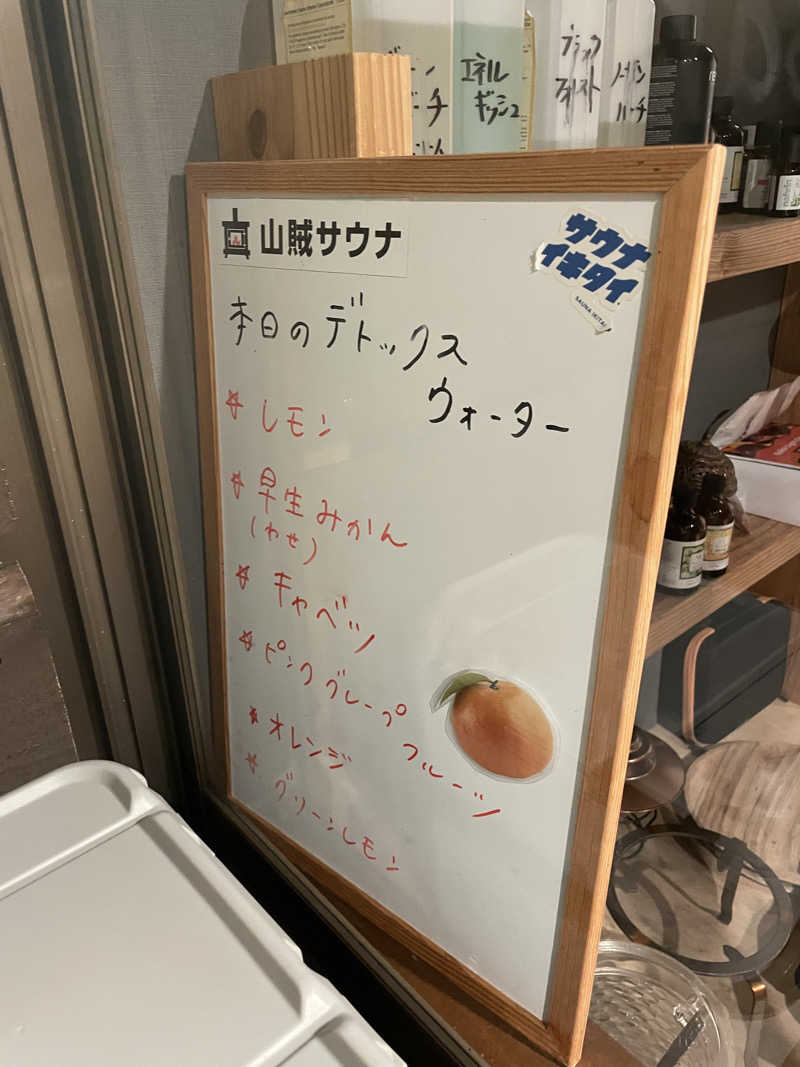 エネル
ギッシュ
ブラック
フォレスト
山賊サウナ
サウナ
イキタイ
SAUNA IKITAI
本日のデトックス
ウォーター
☆レモン
☆早生みかん
(わせ)
☆キャベツ
☆ピンクグレープフルーツ
☆オレンジ
☆グリーンレモン